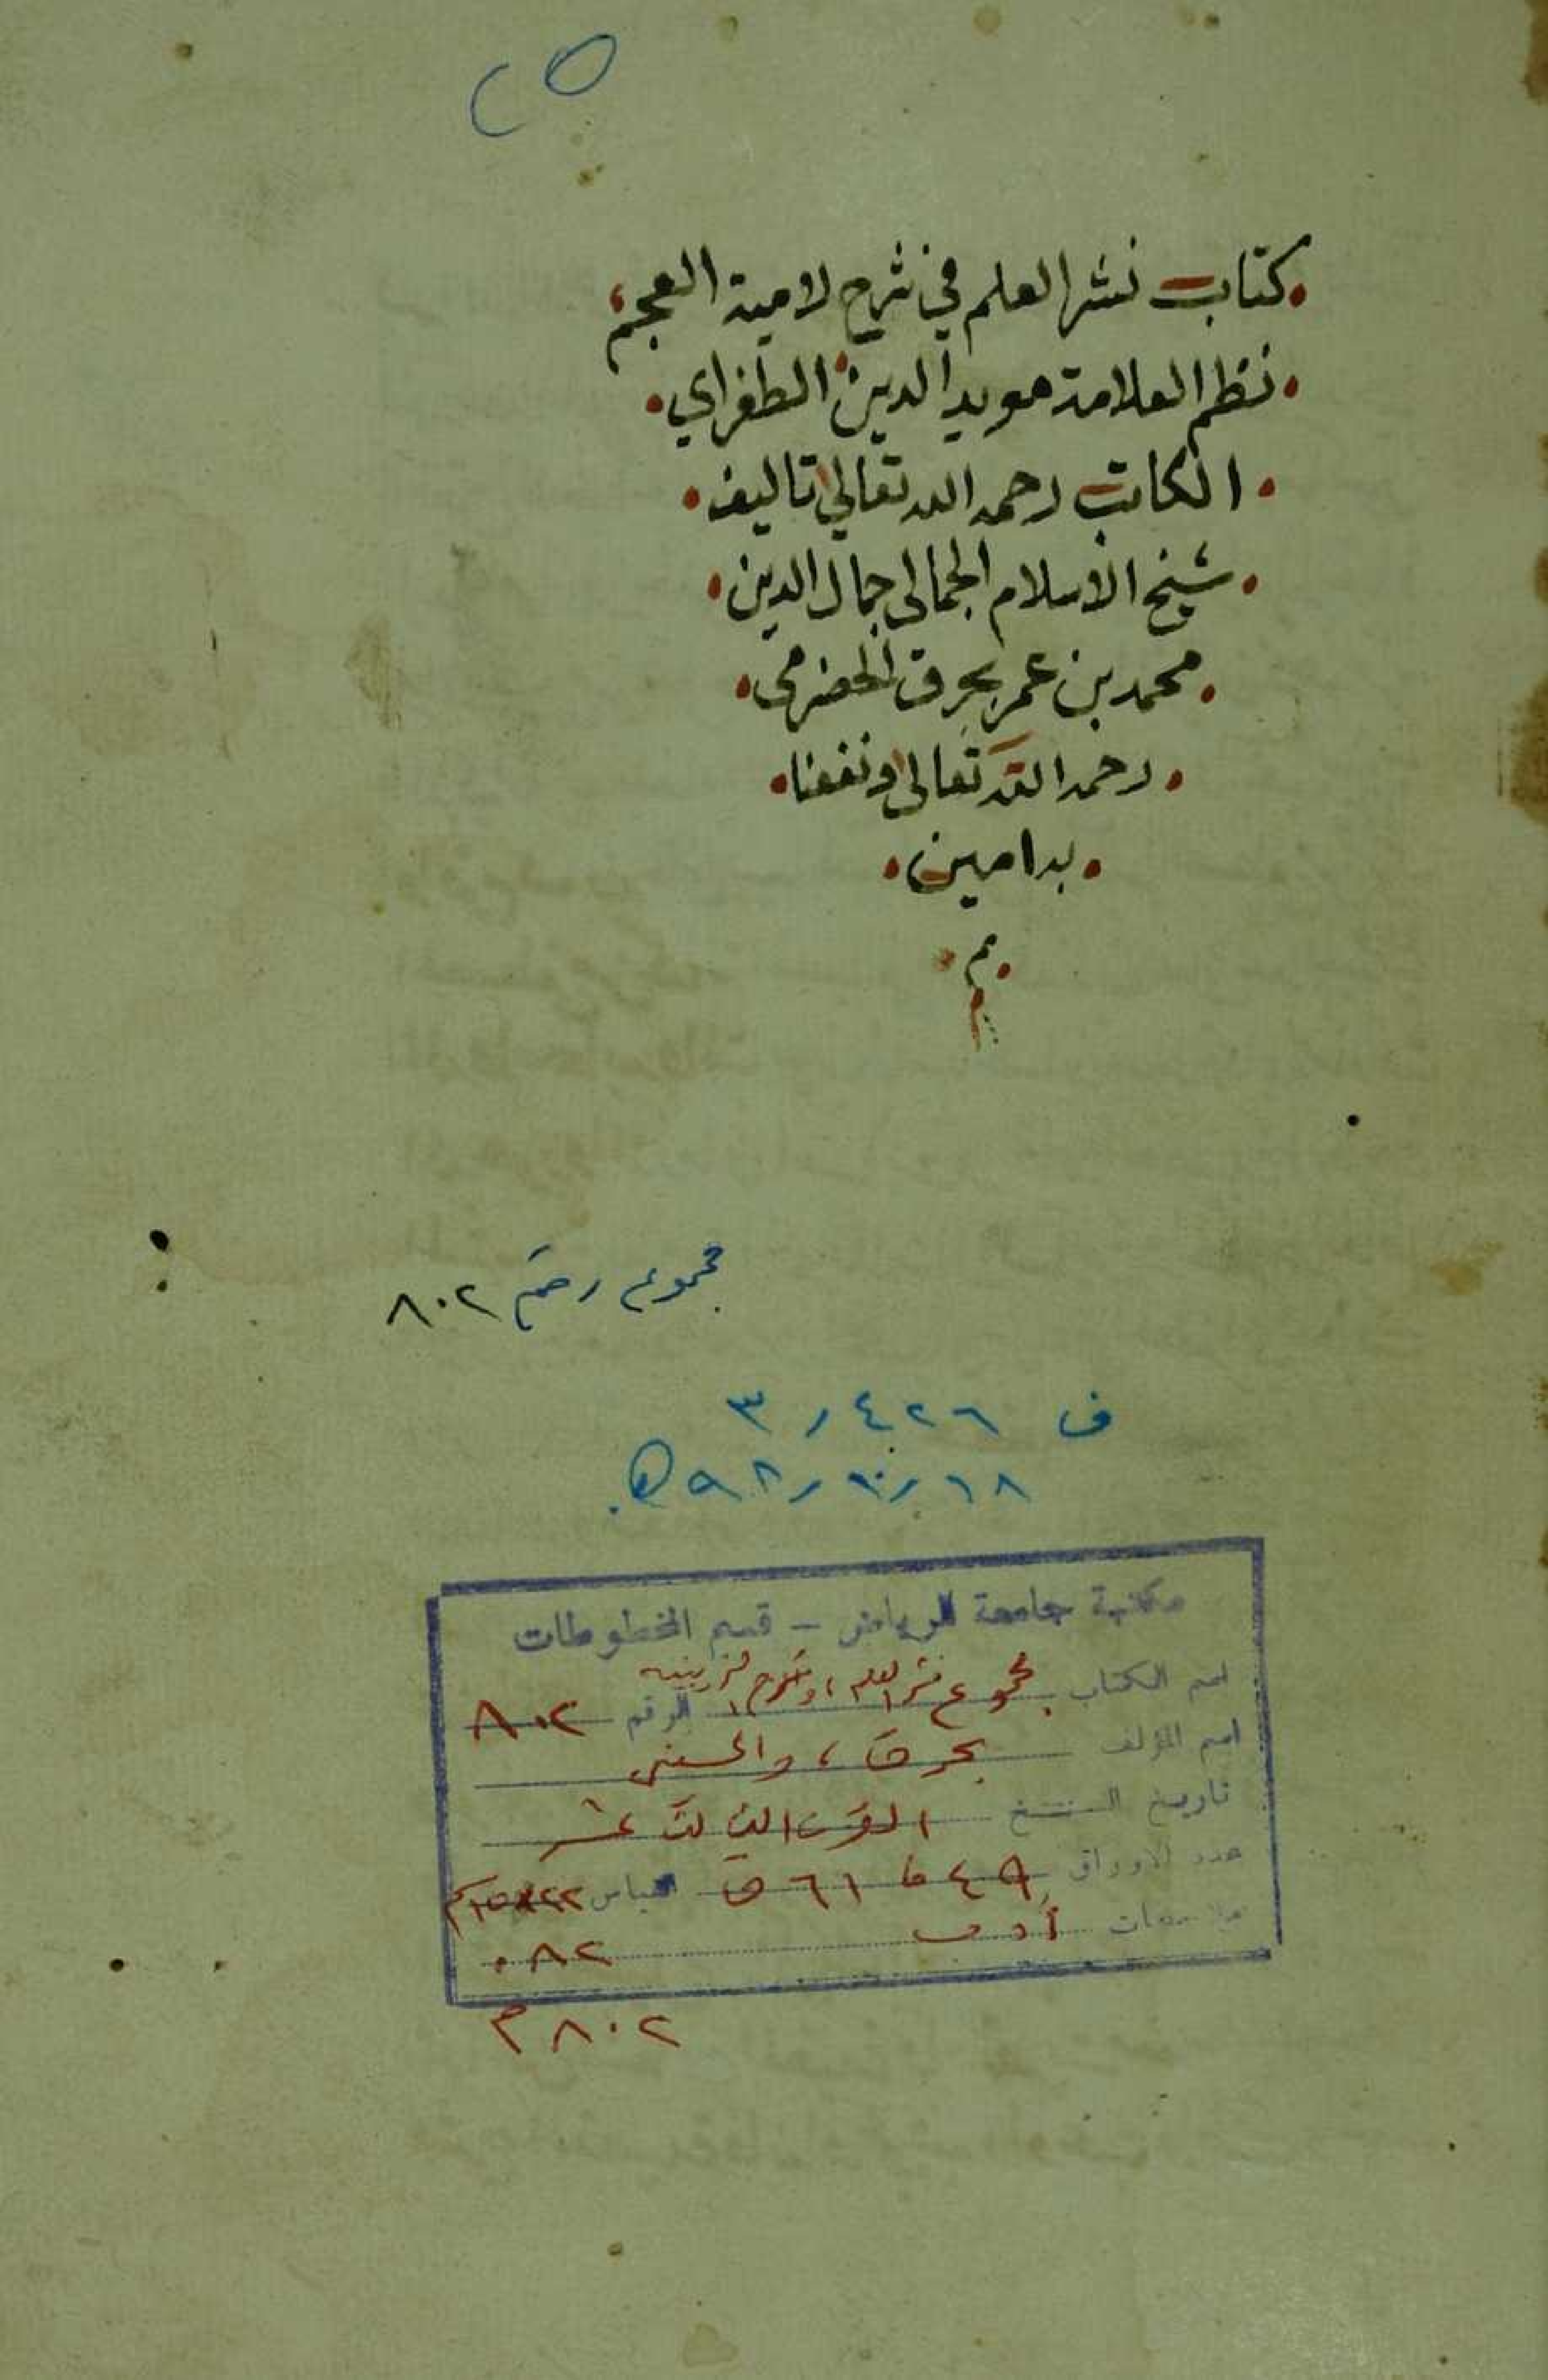 ٢٥
كتاب نشر العلم في شرح لامية العجم
نظم العلامة مويد الدين الطغراي
الكاتب رحمه الله تعالى تاليف
شيخ الاسلام الجمالى جمال الدين
محمد بن عمر بحرق الحضرمى
رحمه الله تعالى ونفعنا
به امين
م
مجموع رقم ٨٠٢
ف ٤٢٦ / ٣
مكتبة جامعة الرياض - قسم المخطوطات
اسم الكتاب مجموع نشر العلم، وشرح الزينبيه الرقم ٨٠٢
اسم المؤلف بحرق، والحسنى
تاريخ النسخ القرن الثالث عشر
عدد الاوراق ٤٩ ٦١ القياس ٢٢×١٥ كم
ملاحظات أدب
٨٠٢ م